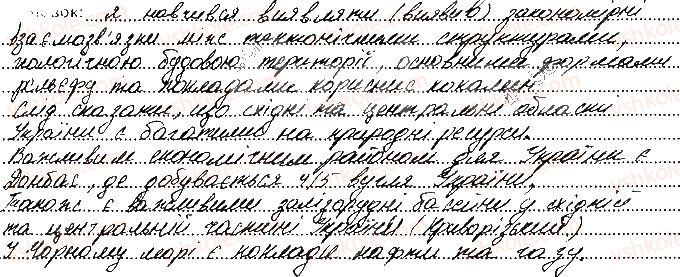 зок: я навчився виявляти (виявив) закономірні
взаємозв'язки між тектонічними структурами,
геологічною будовою території, основними формами
рельєфу та покладами корисних копалин.
Слід сказати, що східні та центральні області
України є багатими на природні ресурси.
Важливим економічним районом для України є
Донбас, де добувається 4/5 вугля України.
Також є важливими залізорудні басейни у східній
та центральній частині України (Криворізький)
У Чорному морі є поклади нафти та газу.